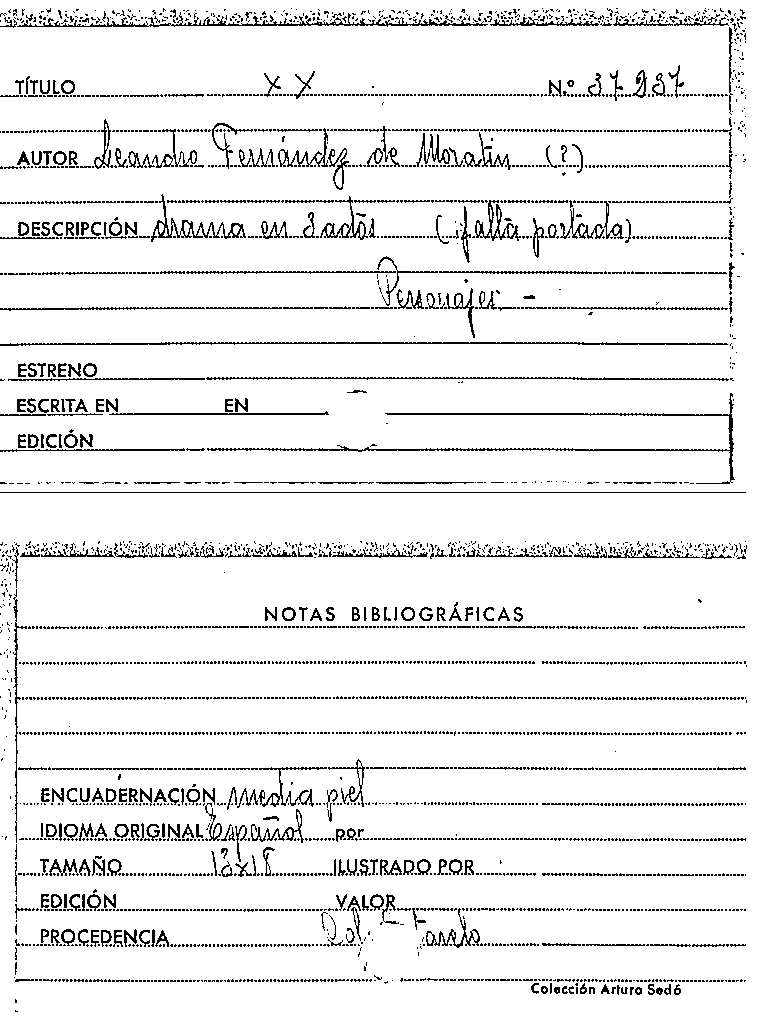 TÍTULO XX N.º 37.937
AUTOR Leandro Fernández de Moratin (?)
DESCRIPCIÓN drama en 3 actos (falta portada)
Personajes -
ESTRENO
ESCRITA EN EN
EDICIÓN
NOTAS BIBLIOGRÁFICAS
ENCUADERNACIÓN Media piel
IDIOMA ORIGINAL Español por
TAMAÑO 13x18 ILUSTRADO POR
EDICIÓN VALOR
PROCEDENCIA
Colección Arturo Sedó